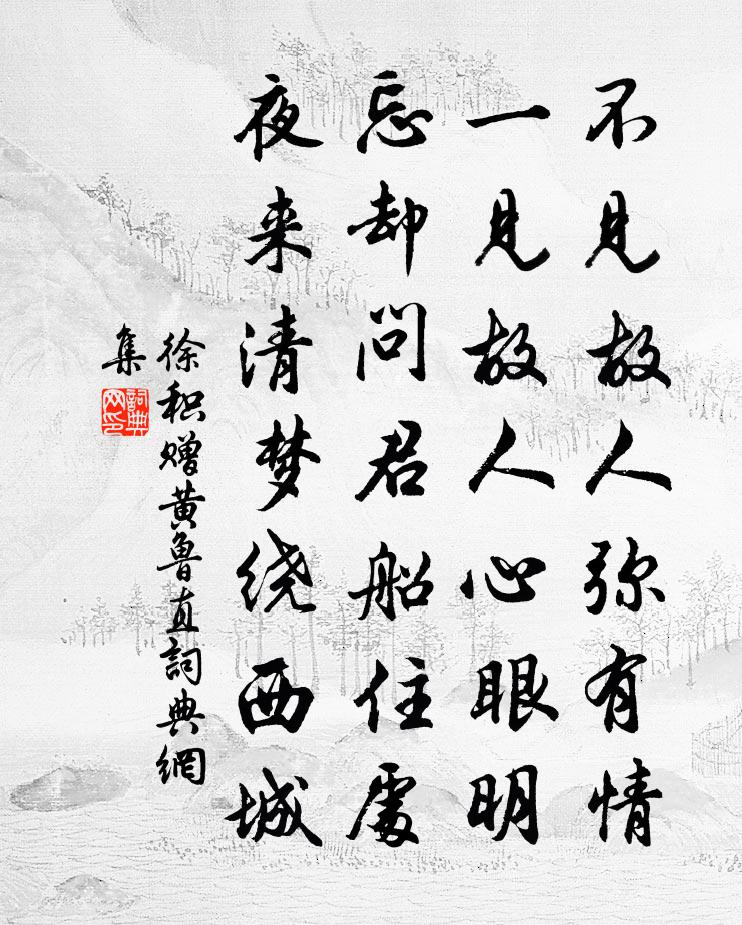 不见故人弥有情
一见故人心眼明
忘却问君船住處
夜来清梦绕西城
徐积赠黄鲁直詞典網
集
詞典
网印